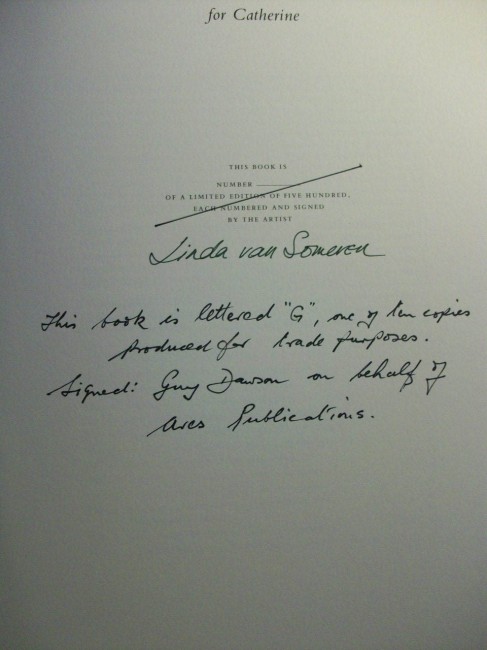 for Catherine
THIS BOOK IS
NUMBER
OF A LIMITED EDITION OF FIVE HUNDRED,
EACH NUMBERED AND SIGNED
BY THE ARTIST
Linda van Someren
This book is lettered "G", one of ten copies
produced for trade purposes.
Signed: Guy Dawson on behalf of
Ares Publications.